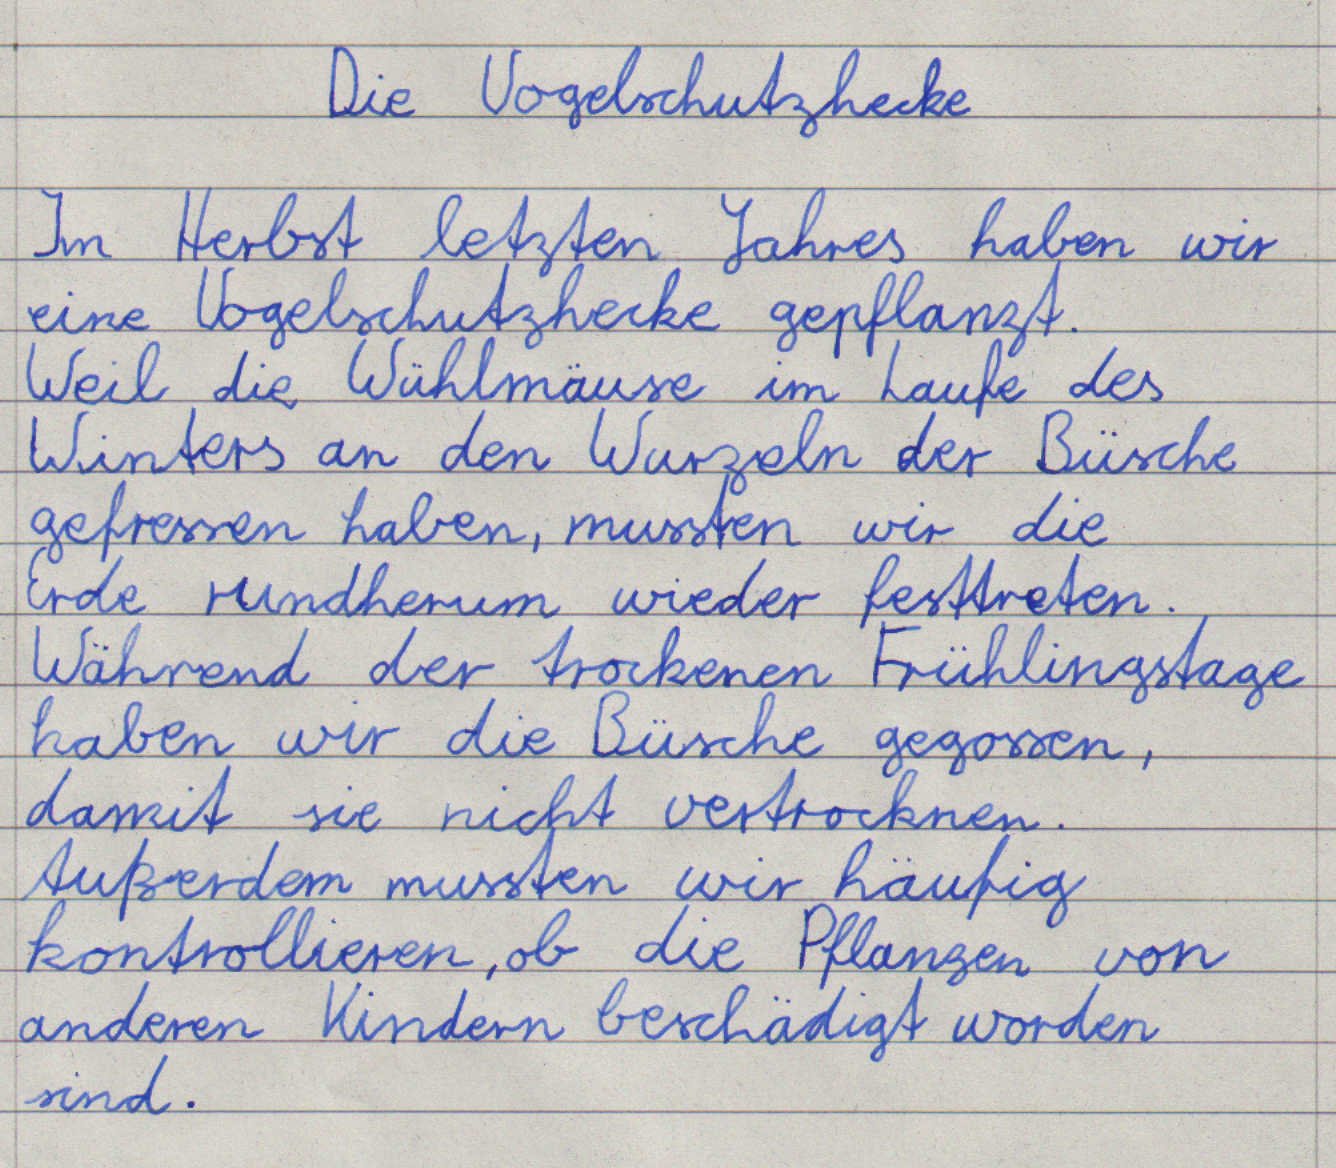 Die Vogelschutzhecke
Im Herbst letzten Jahres haben wir
eine Vogelschutzhecke gepflanzt.
Weil die Wühlmäuse im Laufe des
Winters an den Wurzeln der Büsche
gefressen haben, mussten wir die
Erde rundherum wieder festtreten.
Während der trockenen Frühlingstage
haben wir die Büsche gegossen,
damit sie nicht vertrocknen.
Außerdem mussten wir häufig
kontrollieren, ob die Pflanzen von
anderen Kindern beschädigt worden
sind.